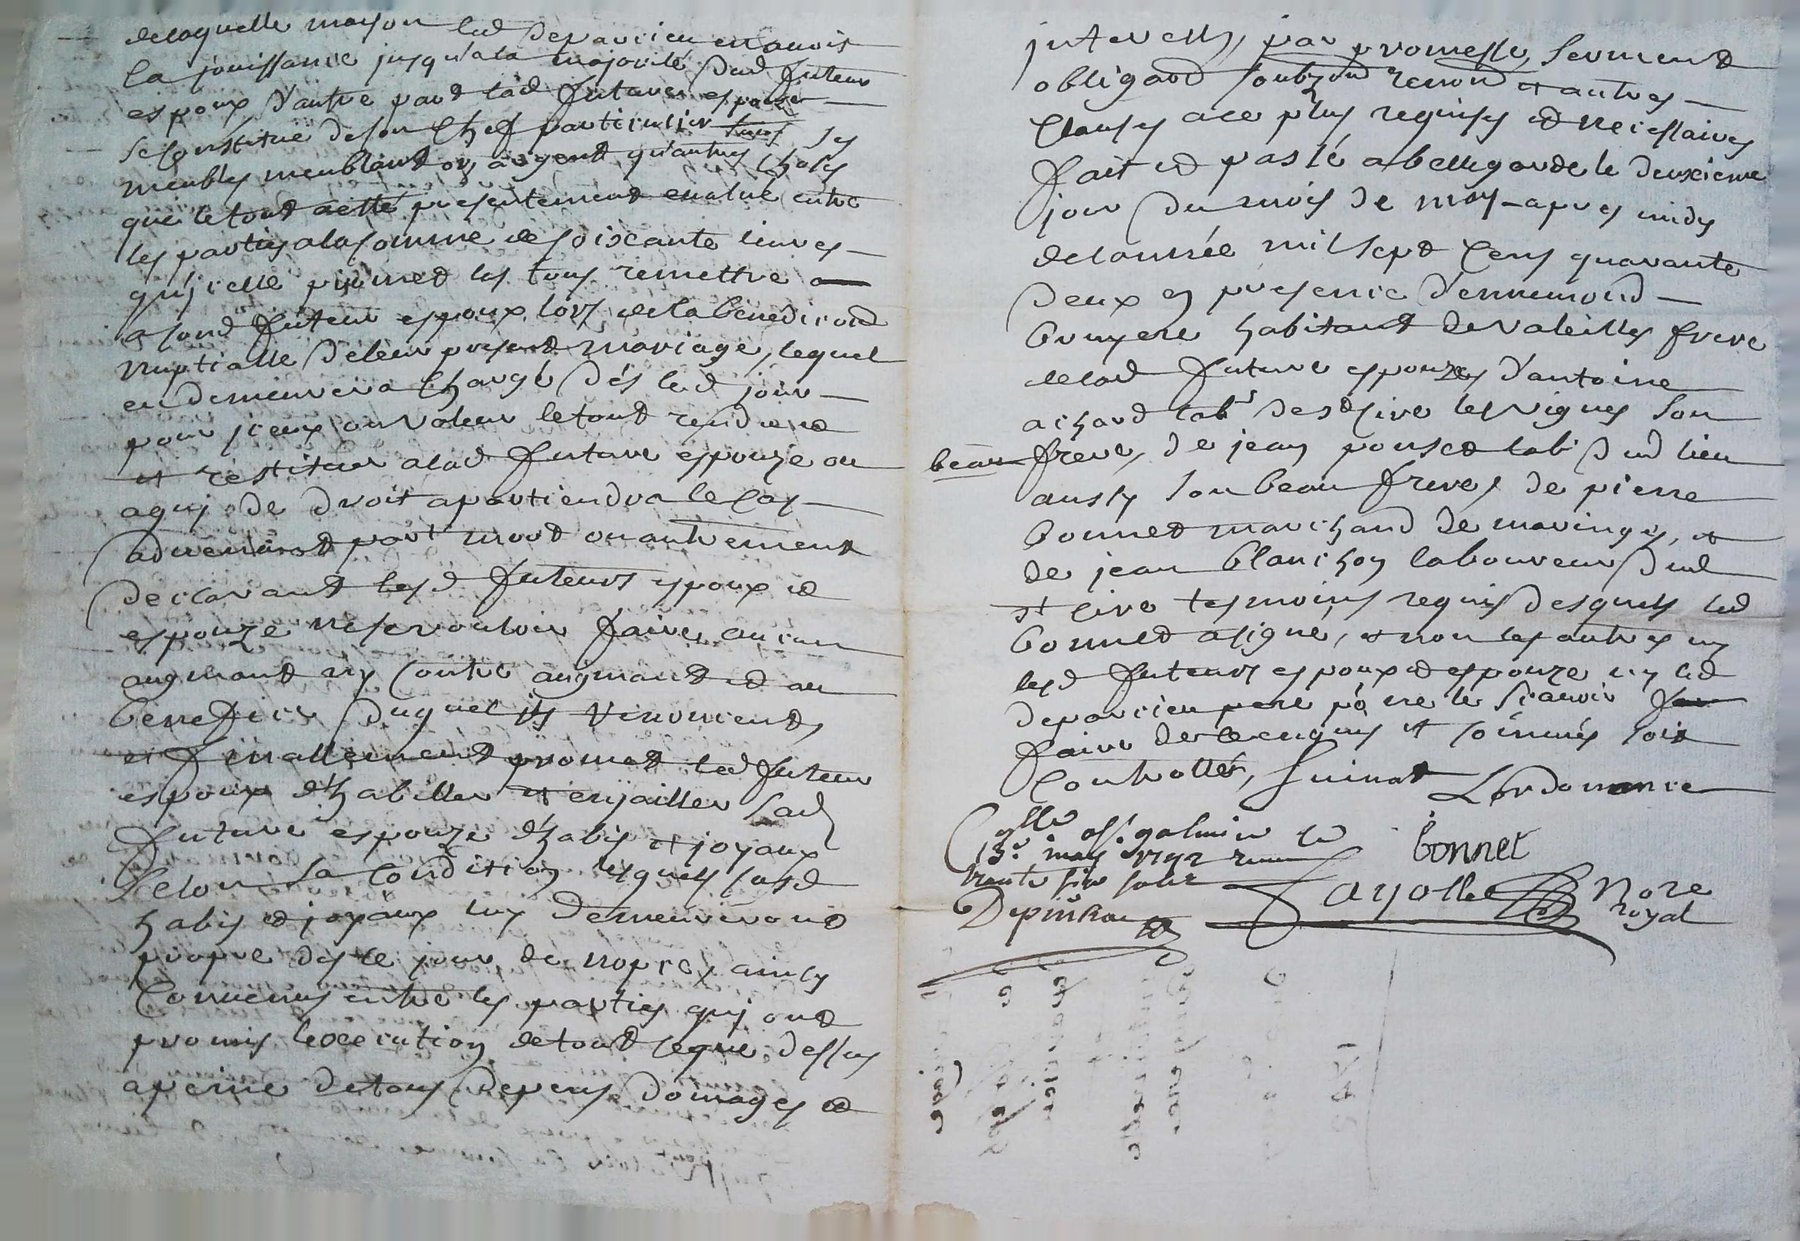 delaquelle maison led deparcieu en auoit
la jouissance jusqua la majorité dud futeur
espoux d'autre part lad future espouze
se constitue de son chef particulier ses
meubles meublant ou argent qu'autres choses
que le tout a esté presentement evalué entre
les parties a la somme de soixante livres
qu'jcelle promet les tous remettre
a sond futeur espoux lors de la benediction
nuptialle de leur present mariage, lequel
en demeurera chargé dés led jour
pour jceux ou valeur le tout rendre
et restituer a lad future espouze ou
a quj de droit apartiendra le cas
advenant par mort ou autrement
declarant lesd futeurs espoux et
espouze ne se vouloir faire aucun
augmant ny contre augmant et au
benefice duquel jls renoncent,
et finallement promet led futeur
espoux d'habiller et enjailler sad
future espouze d'habis et joyaux
selon sa condition lesquels susd
habis et joyaux luy demeureront
propre des le jour de nopces ainsy
convenus entre les parties quj ont
promis lexecution de tout ceque dessus
a peine de tous depens domages et
jnterests, par promesse, serment
obligaon soubzon renon et autres
clauses a ce plus requises et necessaires
fait et passé a bellegarde le deuxieme
jour du mois de may apres midy
de lannée mil sept cens quarante
deux en presence d'ennemond
bruyere habitant de valeilles frere
de lad future espouze, d'antoine
achard labr de st cire les vignes son
beau frere, de jean ponset labr dud lieu
aussy son beau frere, de pierre
bonnet marchand de maringes, et
de jean blanchon laboureur dud
st cire tesmoins requis desquels led
bonnet a signé, et non les autres ny
lesd futeurs espoux et espouze ny led
deparcieu pere po ne le sçauoir
faire de ce enquis et sommés soit
controllé, suivant Lordonnance
Cllé a st galmier le
13e may 1742 reçu
trente six solz
Depinhac
bonnet
Fayolle Nore
Royal